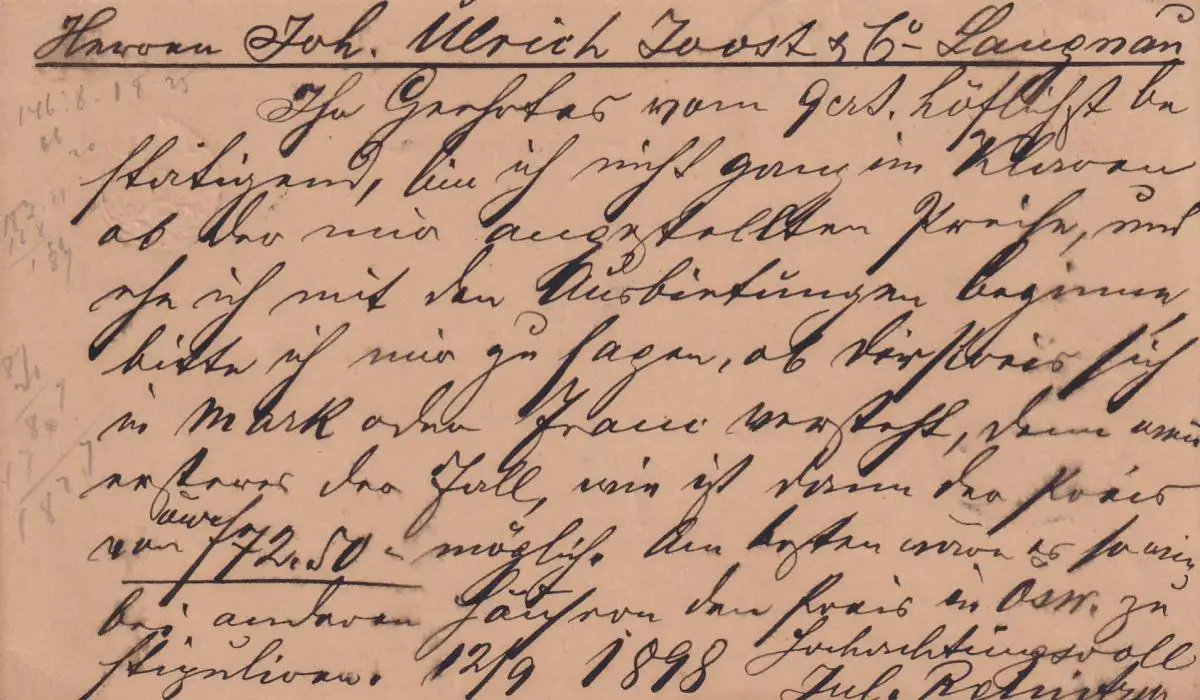 Herren Joh. Ulrich Joost & Co Langnau
Ihr Geehrtes vom 9 crt. höflichst be
stätigend, bin ich nicht ganz im Klaren
ob der mir angestellten Preise, und
ehe ich mit den Ausbietungen beginne
bitte ich mir zu sagen, ob der Preis sich
in Mark oder Franc versteht, denn wenn
ersteres der Fall, wie ist dann der Preis
von 72.50 möglich. Am besten wäre es so wie
bei anderen Häusern den Preis in Östr. zu
stipuliren. 12/9 1898 Hochachtungsvoll
Jul.